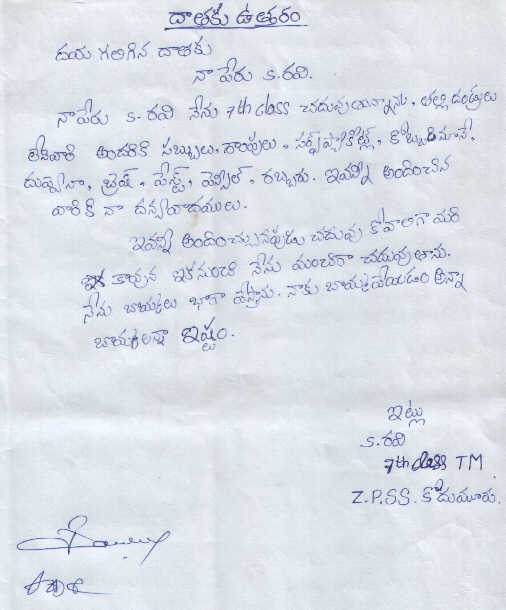 దాతకు ఉత్తరం
దయ గలిగిన దాతకు
నా పేరు S. రవి.
నాపేరు S. రవి నేను 7th class చదువుతున్నాను, తల్లి దండ్రులు
లేనివారి అందరికి సబ్బులు, రాంపులు, సర్ఫ్ ప్యాకెట్స్, కొబ్బరినూనే,
దువ్వెనా, బ్రెష్, పేస్ట్, పెన్సిల్, రబ్బరు. ఇవన్ని అందించిన
వారికి నా దన్యవాదయలు.
ఇవన్ని అందించ్చునపుడు చదువు కోవాలిగా మరి
కావున ఇకనుంచి నేను మంచిగా చదువుతాను.
నేను బొమ్మలు బాగా వేస్తాను. నాకు బొమ్మవేయడం అన్నా
బొమ్మలన్నా ఇష్టం.
ఇట్లు
S. రవి
7th class TM.
Z.P.SS. కోడుమూరు.